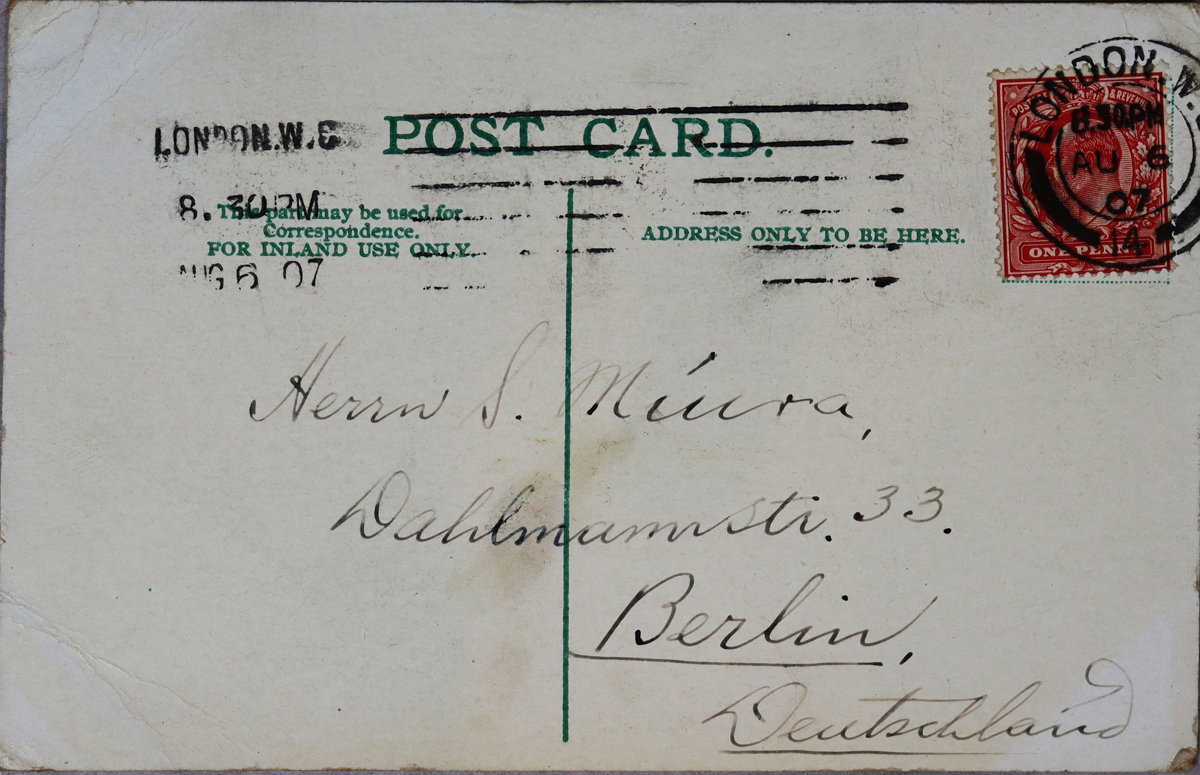 LONDON.W.C
8.30PM
AUG 6 07
POST CARD.
This part may be used for
Correspondence.
FOR INLAND USE ONLY.
ADDRESS ONLY TO BE HERE.
LONDON.W.
8.30PM
AU 6
07
14
& REVENUE
ONE PENNY
Herrn S. Miura,
Dahlmannstr. 33.
Berlin,
Deutschland